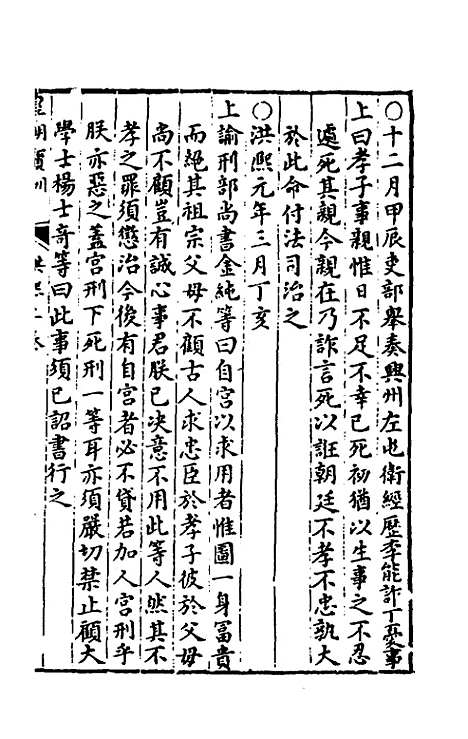 〇十二月甲辰吏部舉奏興州左屯衛經歷李能詐丁憂事
上曰孝子事親惟日不足不幸已死初猶以生事之不忍
遽死其親今親在乃詐言死以誑朝廷不孝不忠孰大
於此命付法司治之
〇洪熙元年三月丁亥
上諭刑部尚書金純等曰自宮以求用者惟圖一身富貴
而絕其祖宗父母不顧古人求忠臣於孝子彼於父母
尚不顧豈有誠心事君朕已决意不用此等人然其不
孝之罪須懲治今後有自宮者必不貸若加人宮刑乎
朕亦惡之蓋宮刑下死刑一等耳亦須嚴切禁止顧大
學士楊士奇等曰此事須已詔書行之
皇明寶訓 洪熙 卷